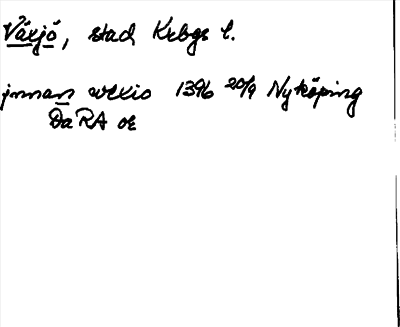 Växjö, stad Krbgs l.
jnnan wexio 1396 20/9 Nyköping
Da RA or